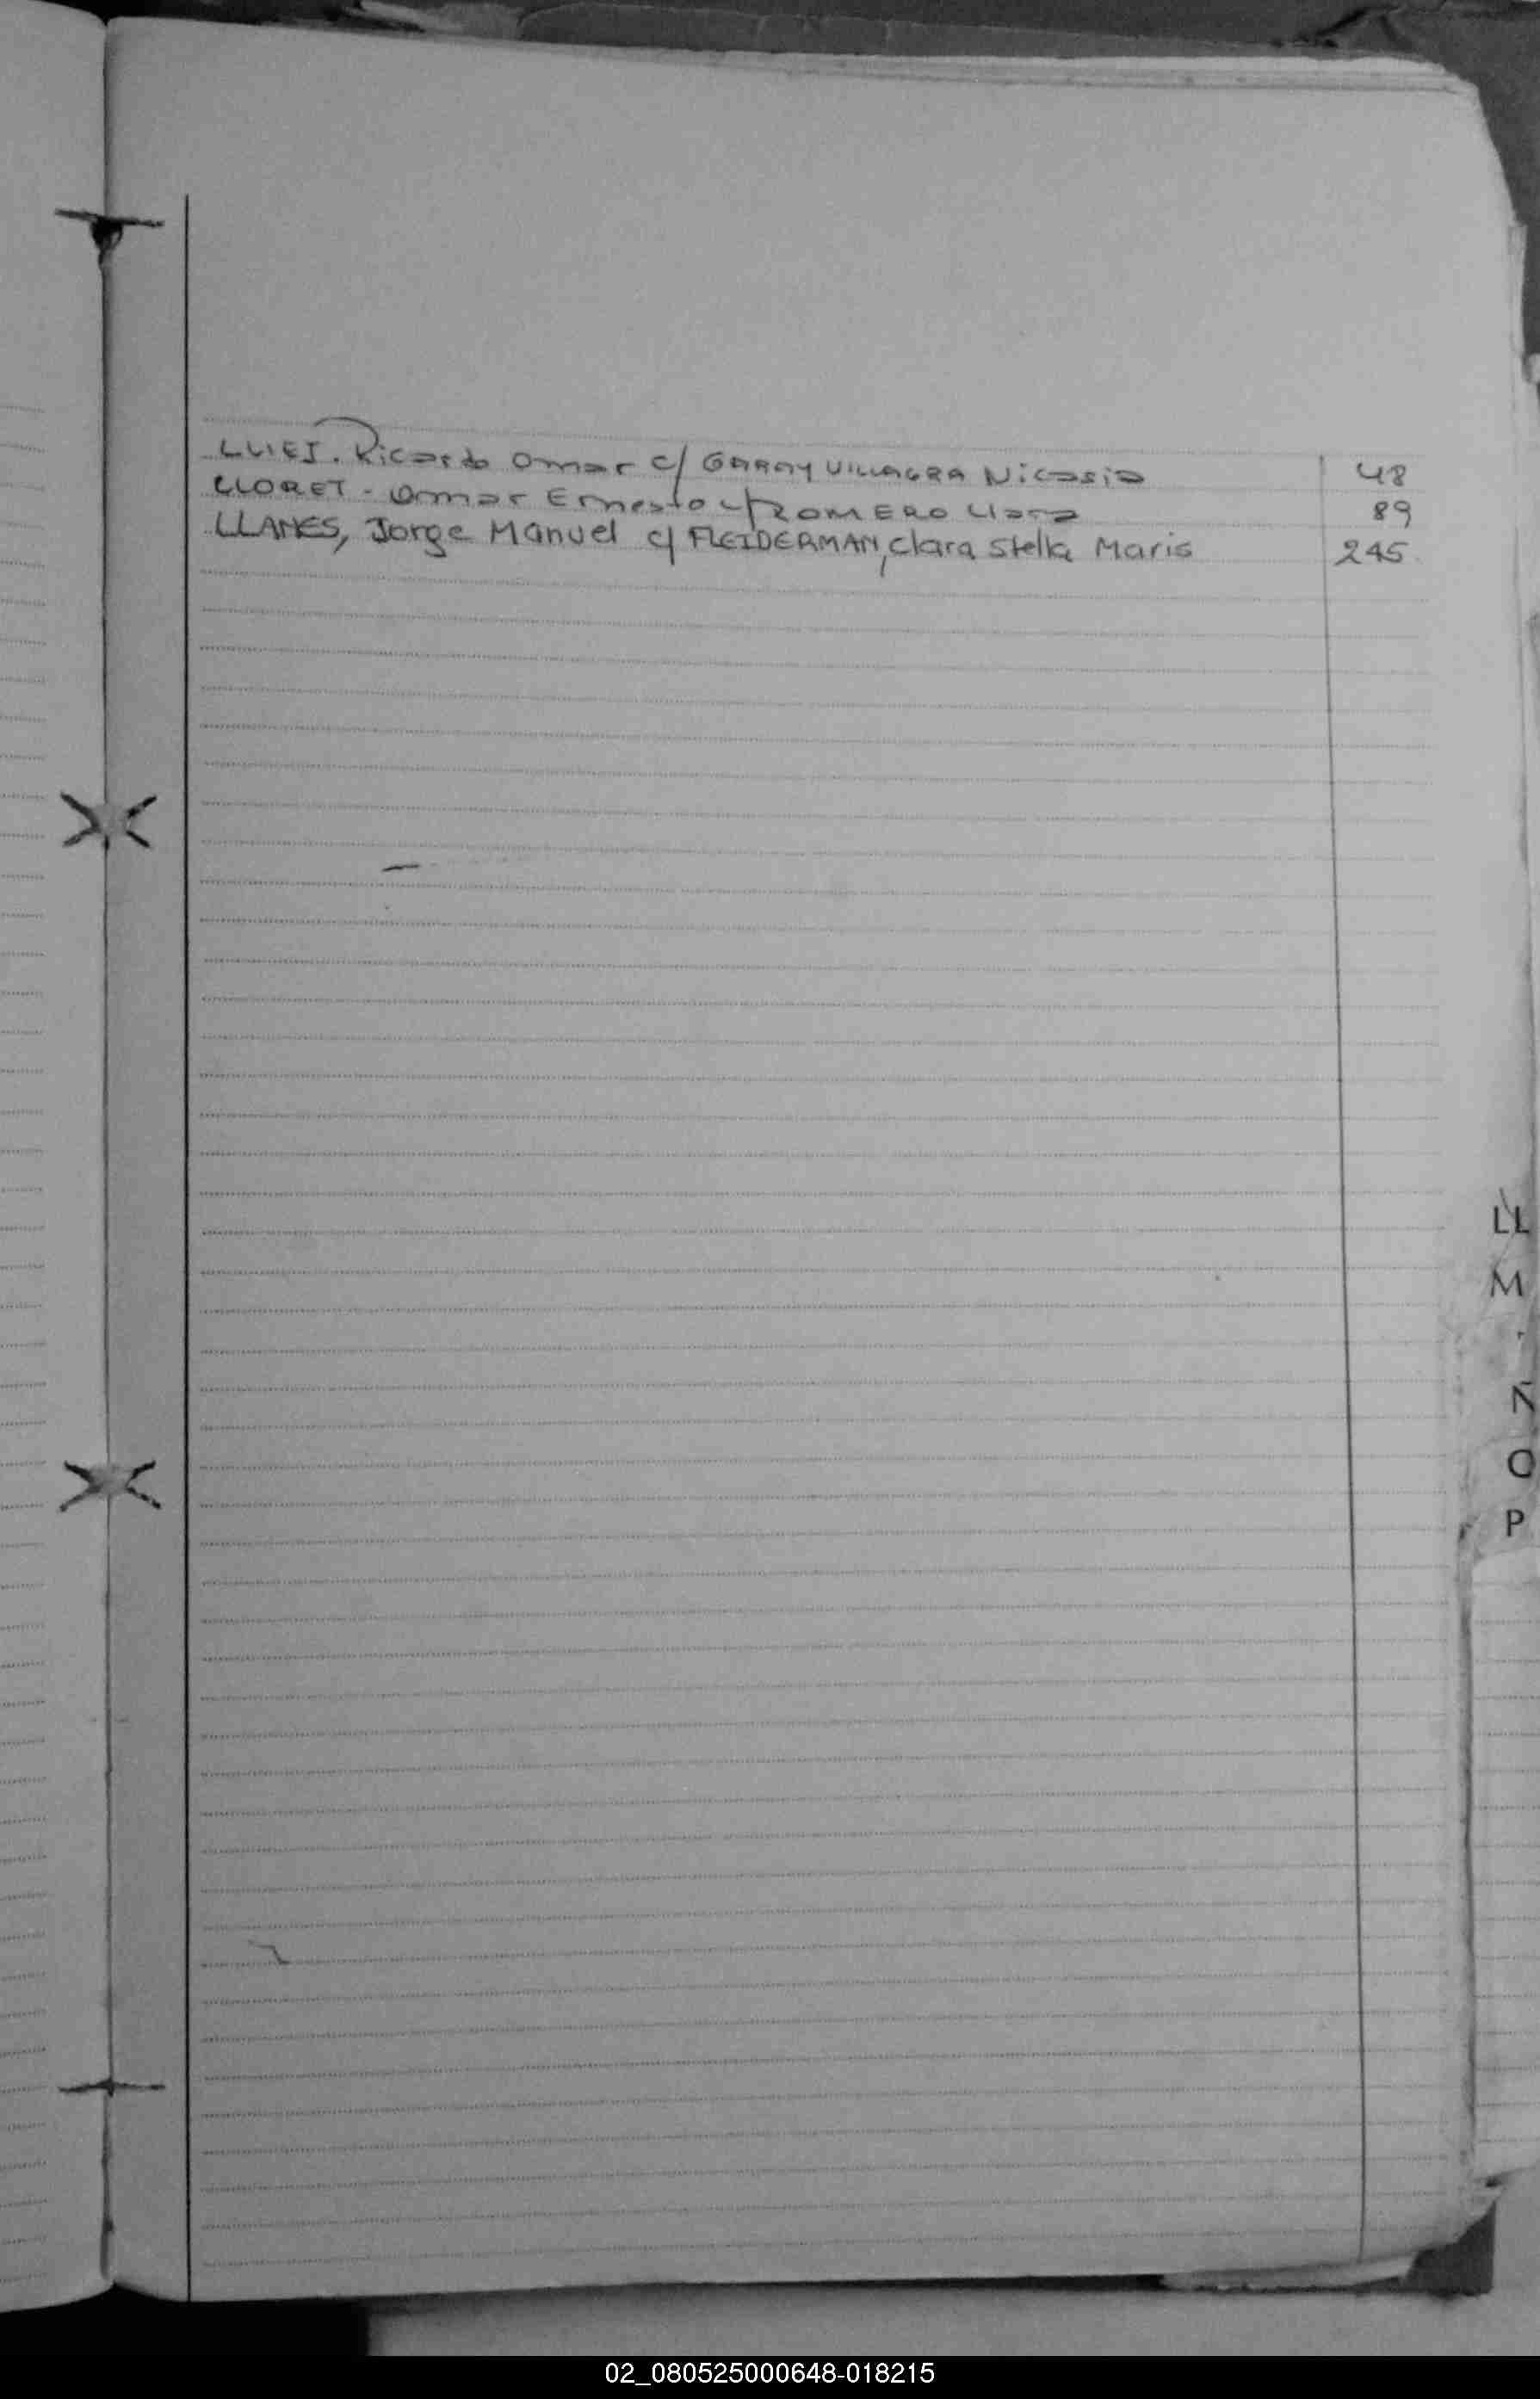 LLIES. Ricardo Omar c/ GARAY VILLAGRA Nicasia 48
LLORET - Omar Ernesto c/ ROMERO Clara 89
LLANES, Jorge Manuel c/ FLEIDERMAN, Clara Stella Maris 245
LL
M
Ñ
O
P
02_080525000648-018215